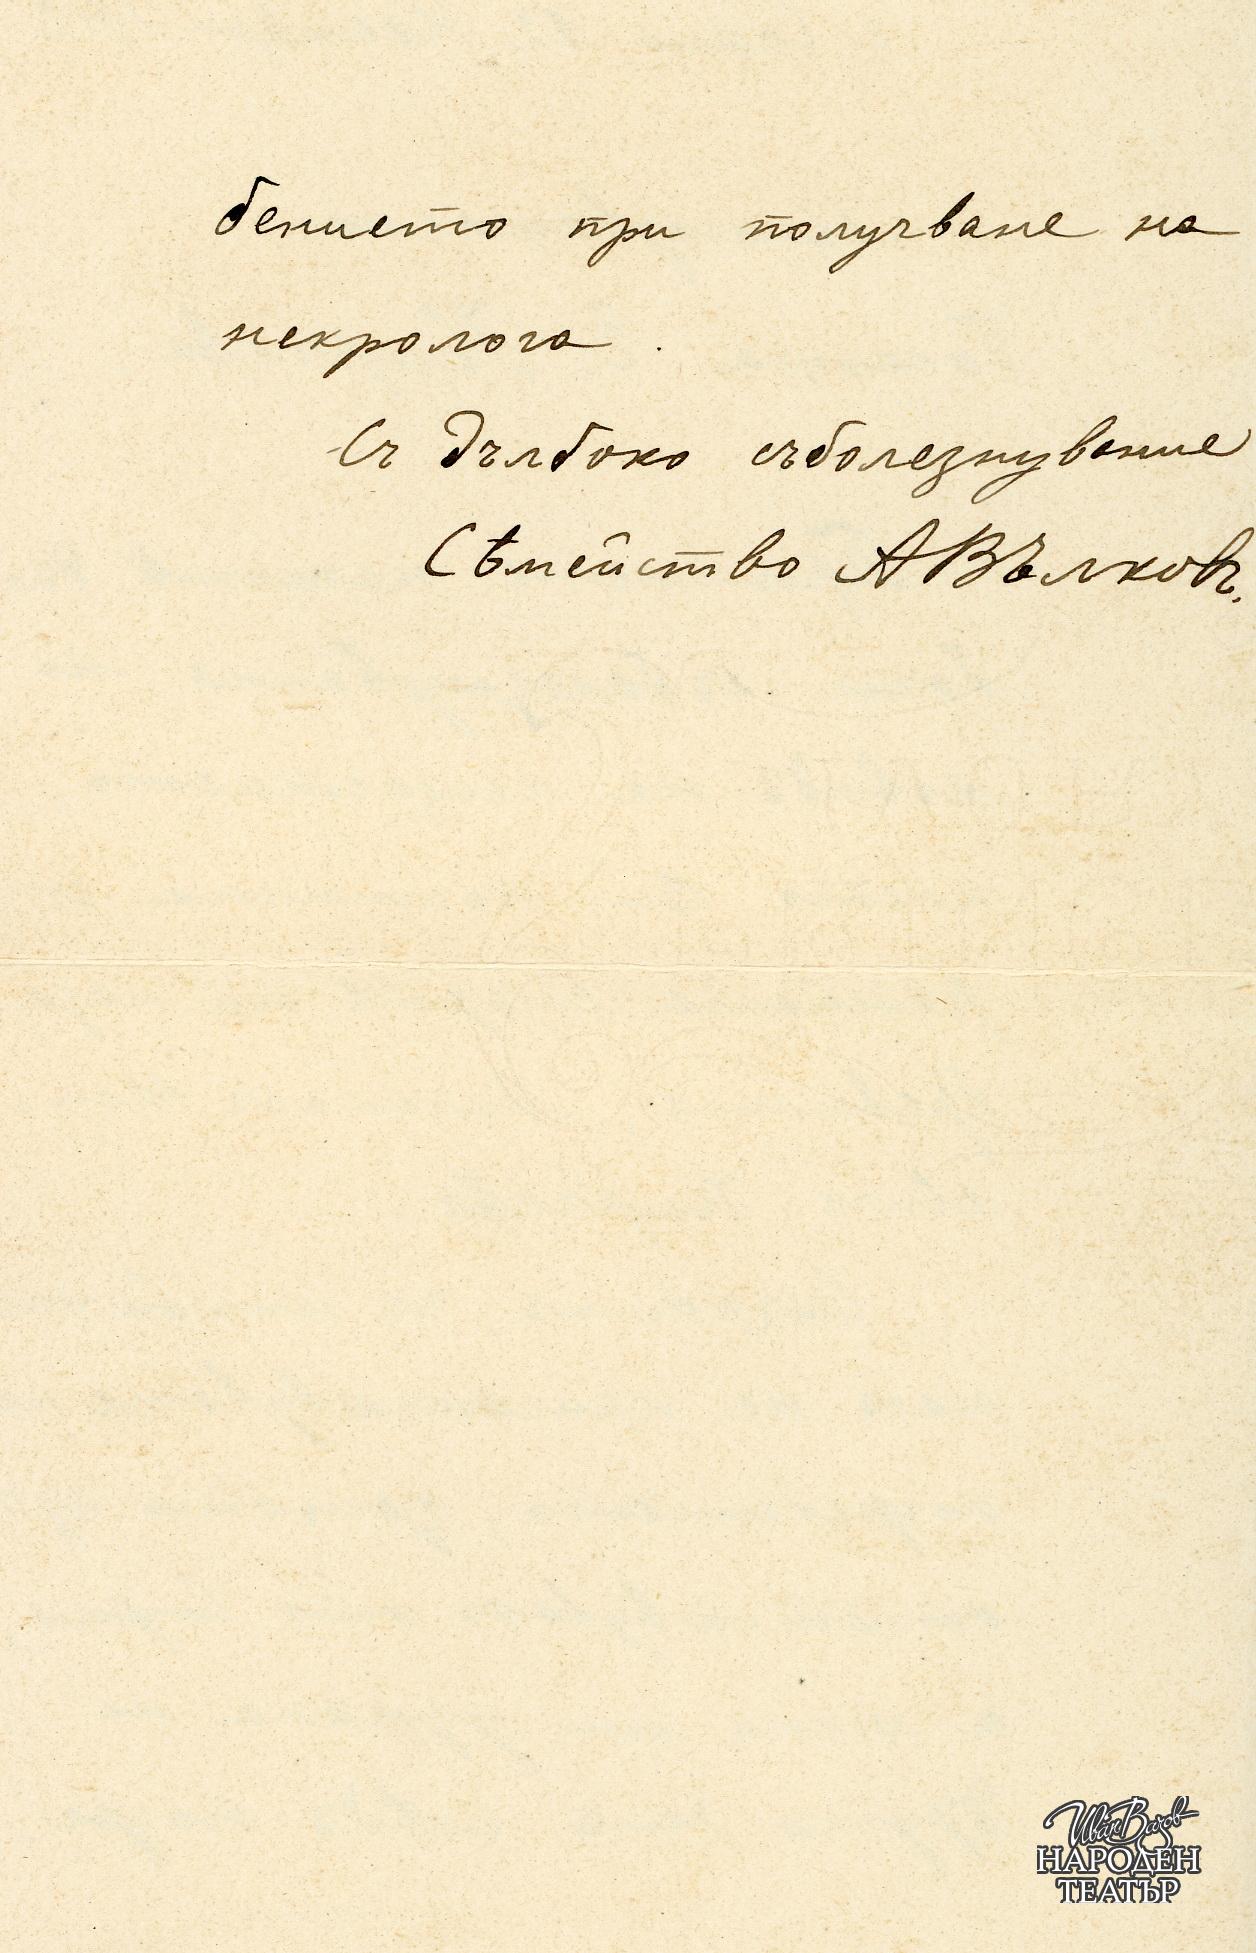 бението при получване на
некролога.
Съ дълбоко съболезнувание
Сѣмейство А Вълковъ.
Иван Вазов
НАРОДЕН
ТЕАТЪР